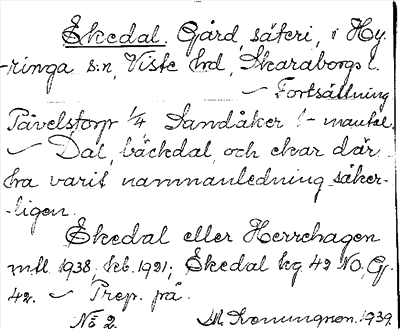 Ekedal. Gård, säteri, i Hy-
-ringa s:n, Viste hd, Skaraborgs l.
~ Fortsättning
Påvelstorp 1/4 Sandåker 1/- mantal.
~ Dal, bäckdal, och ekar där
ha varit namnanledning säker-
-ligen.
Ekedal eller Herrehagen
mtl. 1938, kb. 1921; Ekedal kg. 42 NO, Gj.
42. ~ Prep. på.
No 2. 1939.